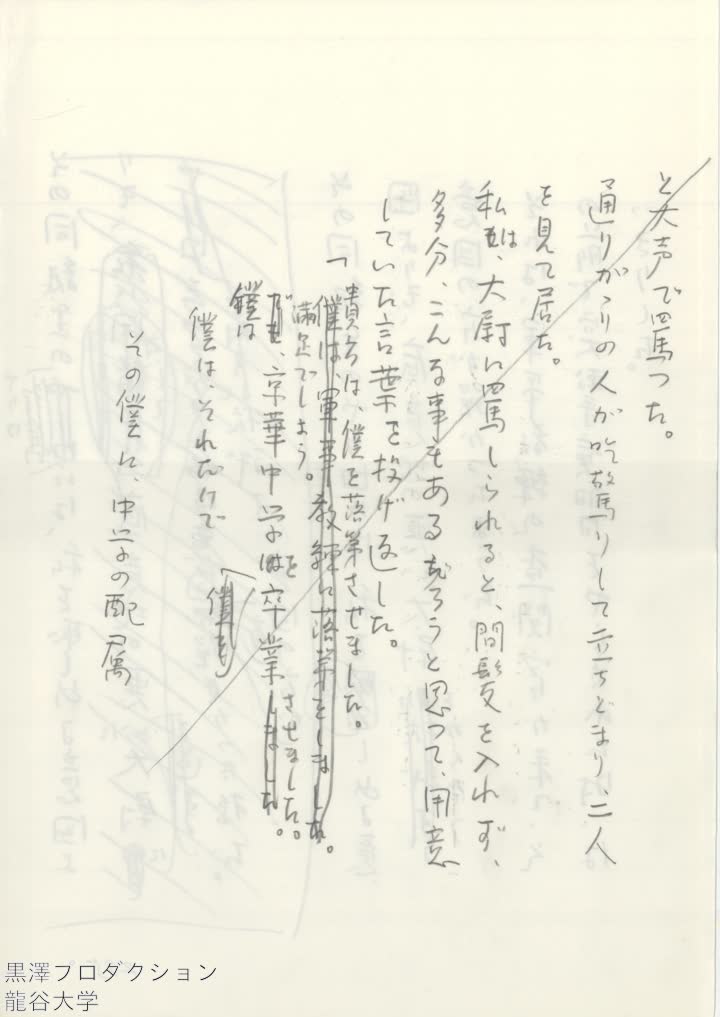 と大声で罵つた。
通りがゝりの人が吃驚りして立ちどまり、二人
を見て居た。
私は、大尉に罵しられると、間髪を入れず、
多分、こんな事もあるだろうと思つて、用意
していた言葉を投げ返した。
「貴方は、僕を落第させました。
僕は、軍事教練に落第をしました。
満足でしよう。
でも、京華中学は を卒業しました。させました。
僕は
僕は、それだけで 僕を
その僕に、中学の配属
黒澤プロダクション
龍谷大学